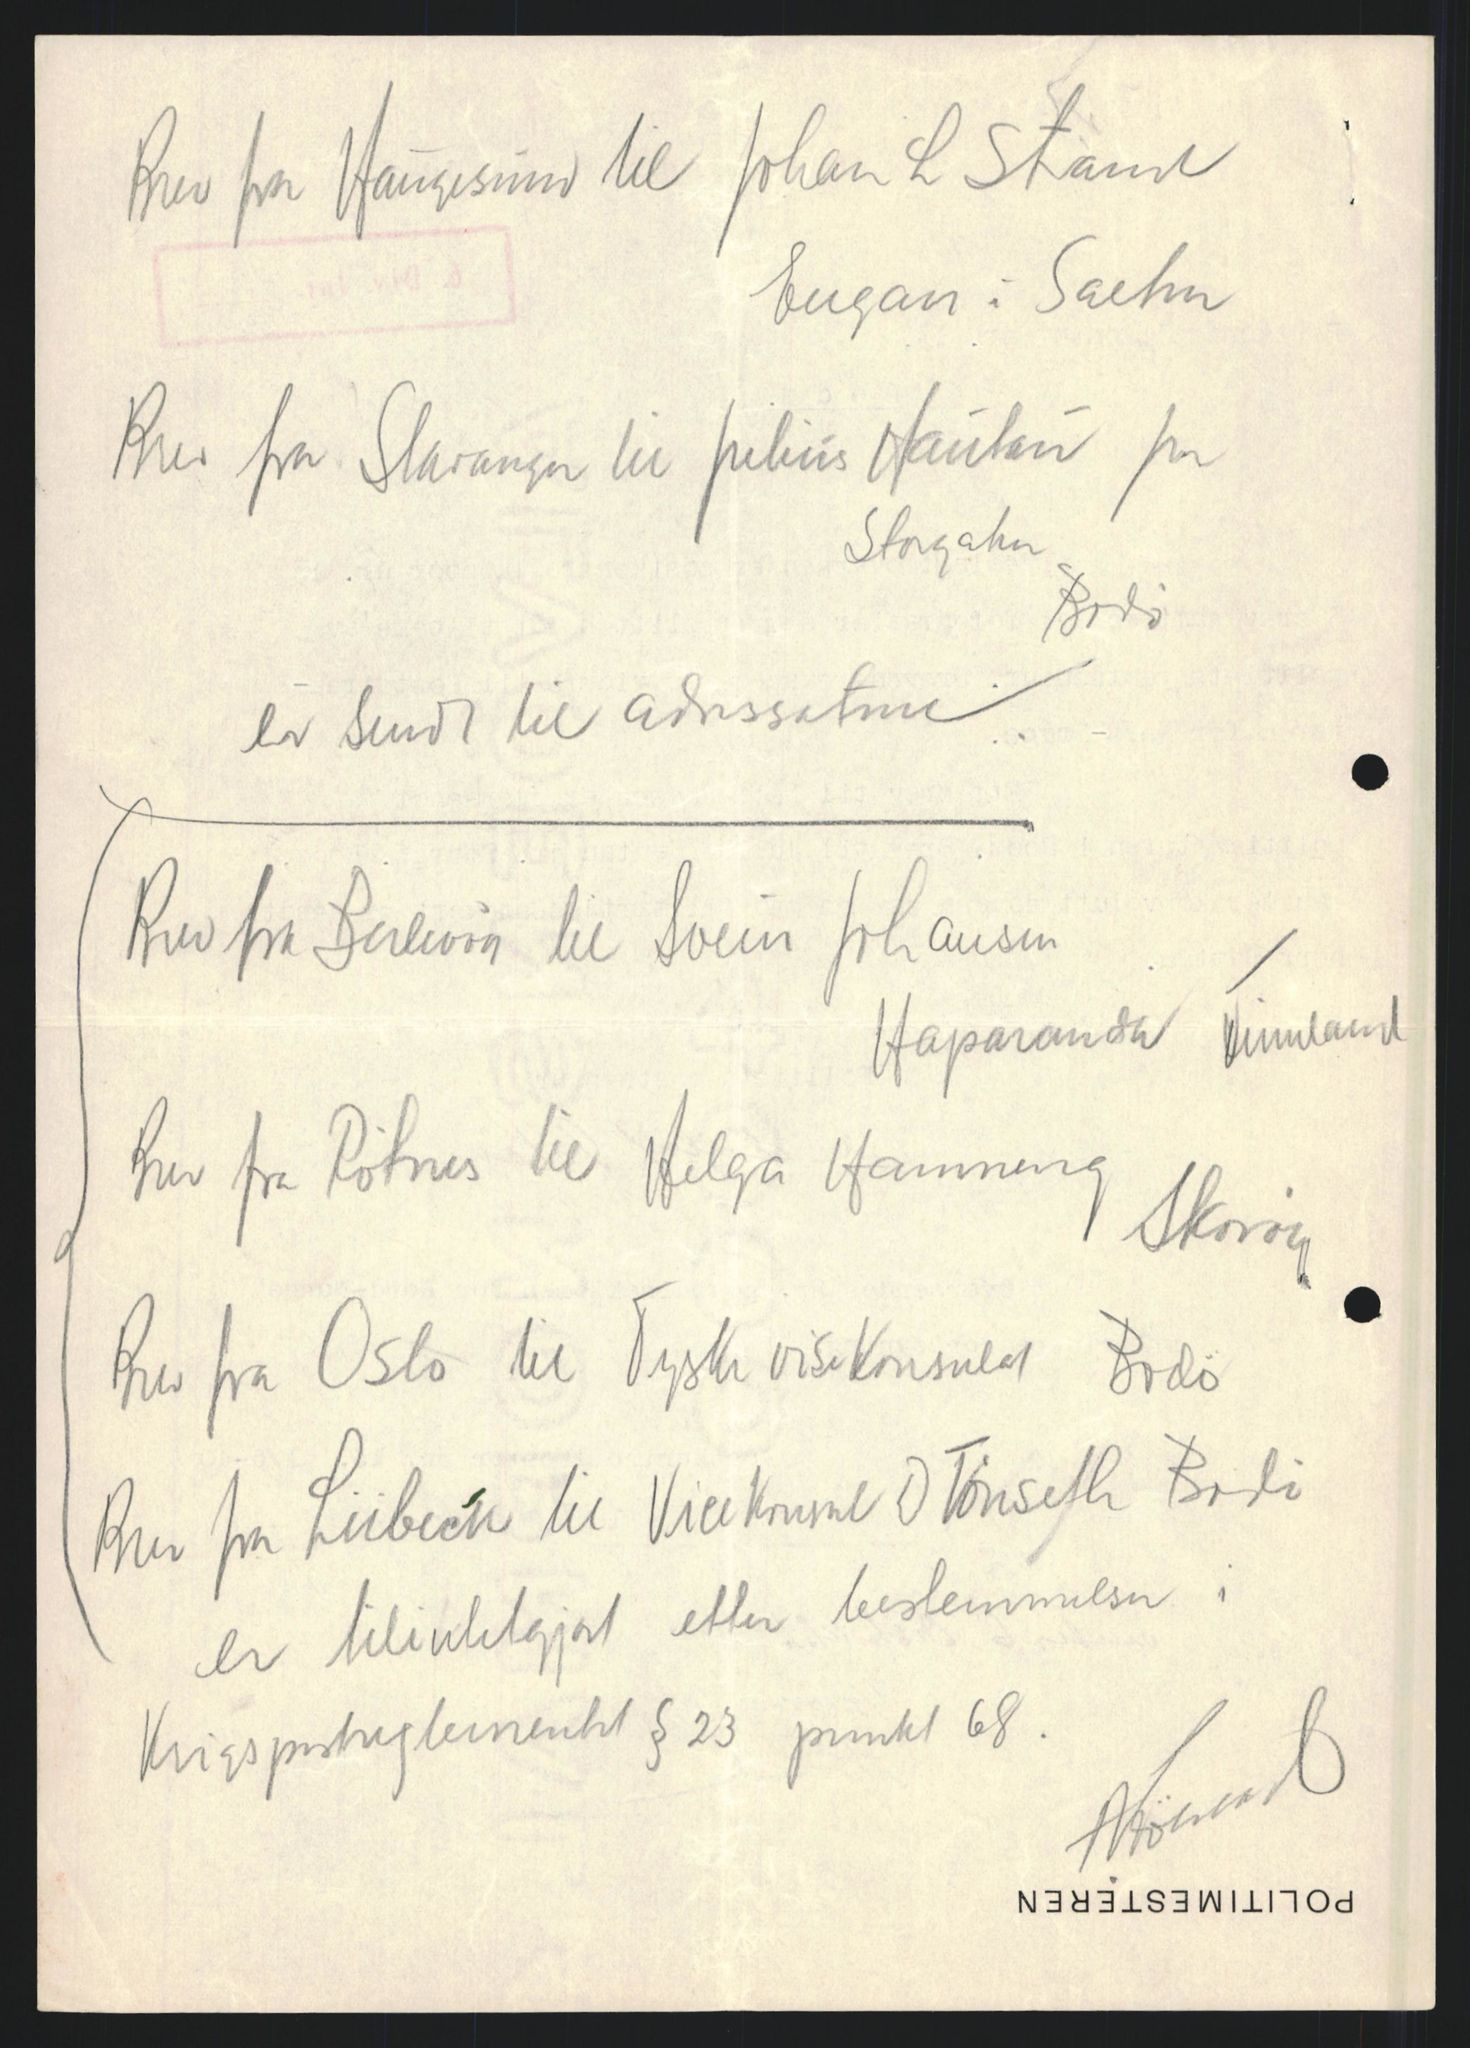 Brev fra Haugesund til Johan L Strand
Engan i Saeter
Brev fra Stavanger til Julius Hautau jr
Storgaten
Bodö
er sendt til adressatene
Brev fra Berlevåg til Svein Johansen
Haparanda Finnland
Brev fra Rötnes til Helga Hammeng
Skarvåg
Brev fra Oslo til Tysk visekonsulat Bodö
Brev fra Lübeck til Vicekonsul O Tönseth Bodö
er tilintetgjort etter bestemmelsen i
Krigspostreglementet § 23 punkt 68.
POLITIMESTEREN